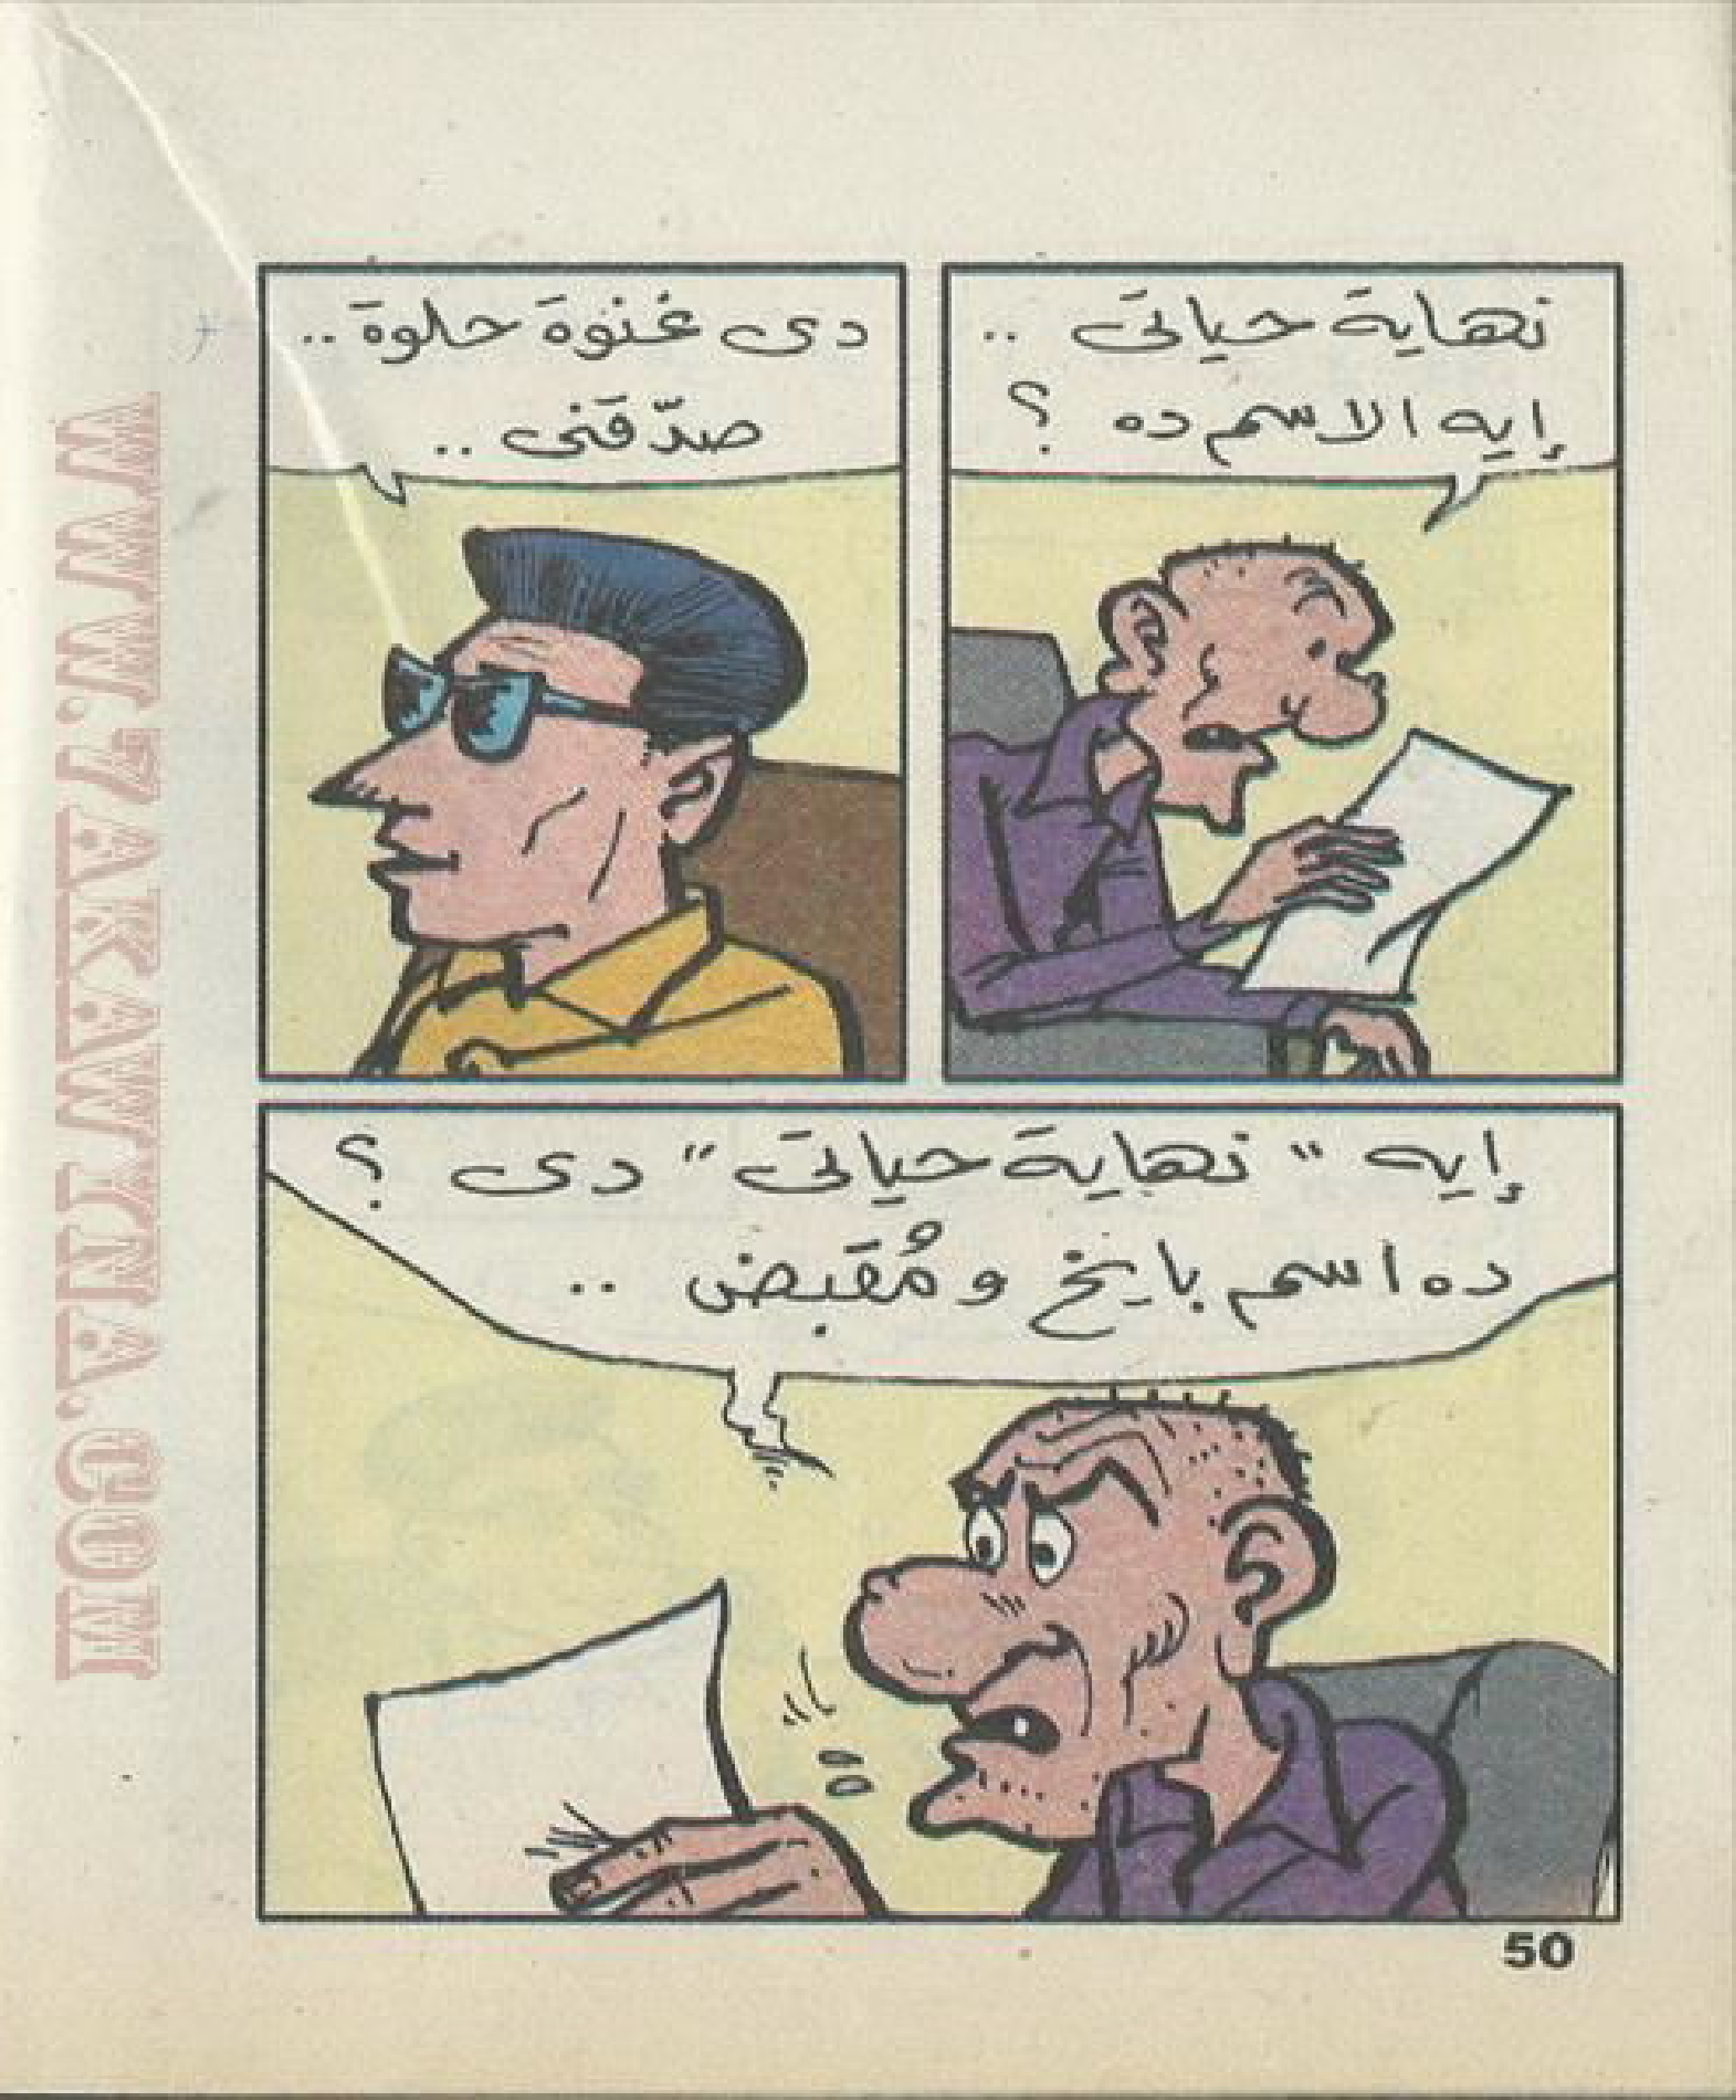 نهاية حياتى ..
إيه الاسم ده ؟
دى غنوة حلوة ..
صدّقنى ..
إيه "نهاية حياتى" دى ؟
ده اسم بايخ ومُقبض ..
50
WWW.7AKAWTNA.COM